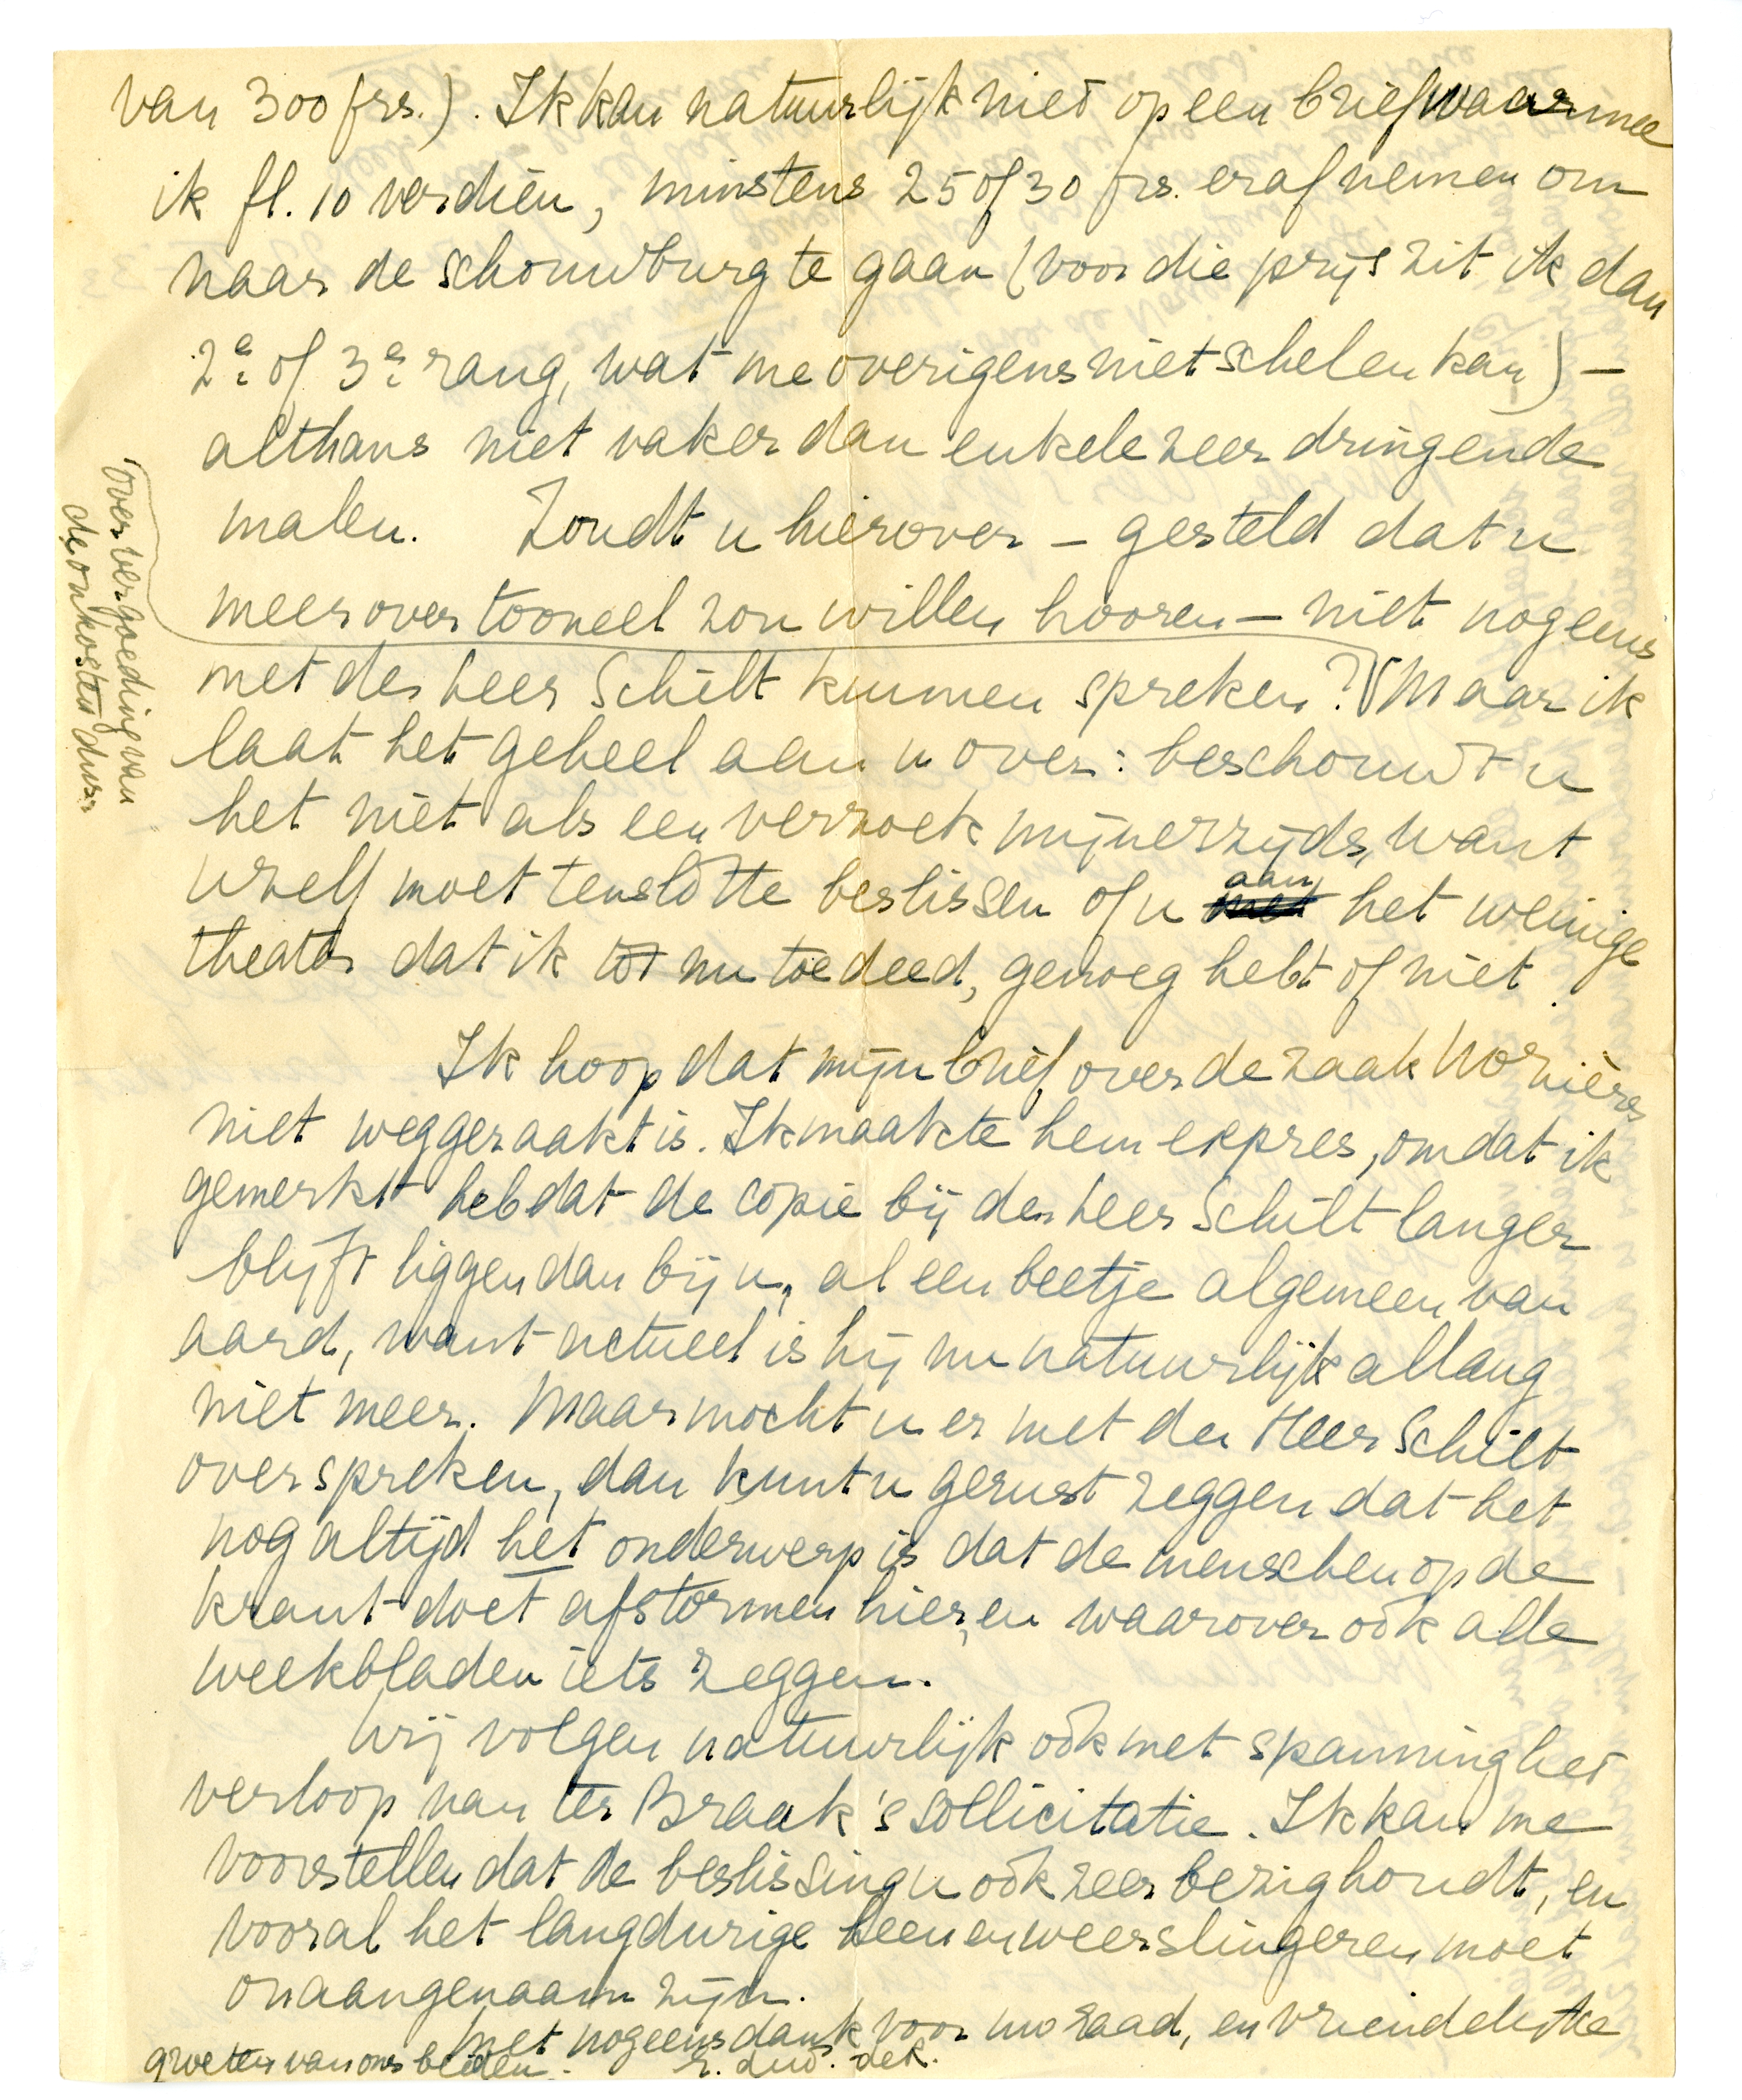 van 300 frs.). Ik kan natuurlijk niet op een brief waarmee
ik fl. 10 verdien, minstens 25 of 30 frs. eraf nemen om
naar de schouwburg te gaan (voor die prijs zit ik dan
2e of 3e rang, wat me overigens niet schelen kan) –
althans niet vaker dan enkele zeer dringende
malen. Zoudt u hierover – gesteld dat u
meer over tooneel zou willen hooren – niet nog eens
met den heer Schilt kunnen spreken? Maar ik
over vergoeding van
de onkosten dus.
laat het geheel aan u over: beschouwt u
het niet als een verzoek mijnerzijds, want
uzelf moet tenslotte beslissen of u aan het weinige
theater dat ik tot nu toe deed, genoeg hebt of niet.
Ik hoop dat mijn brief over de zaak Nozières
niet weggeraakt is. Ik maakte hem expres, omdat ik
gemerkt heb dat de copie bij den heer Schilt langer
blijft liggen dan bij u, al een beetje algemeen van
aard, want actueel is hij nu natuurlijk allang
niet meer. Maar mocht u er met den Heer Schilt
over spreken, dan kunt u gerust zeggen dat het
nog altijd het onderwerp is dat de menschen op de
krant doet afstormen hier, en waarover ook alle
weekbladen iets zeggen.
Wij volgen natuurlijk ook met spanning het
verloop van ter Braak's sollicitatie. Ik kan me
voorstellen dat de beslissing u ook zeer bezighoudt, en
vooral het langdurige heen en weer slingeren moet
onaangenaam zijn.
Met nogeens dank voor uw raad, en vriendelijke
groeten van ons beiden.